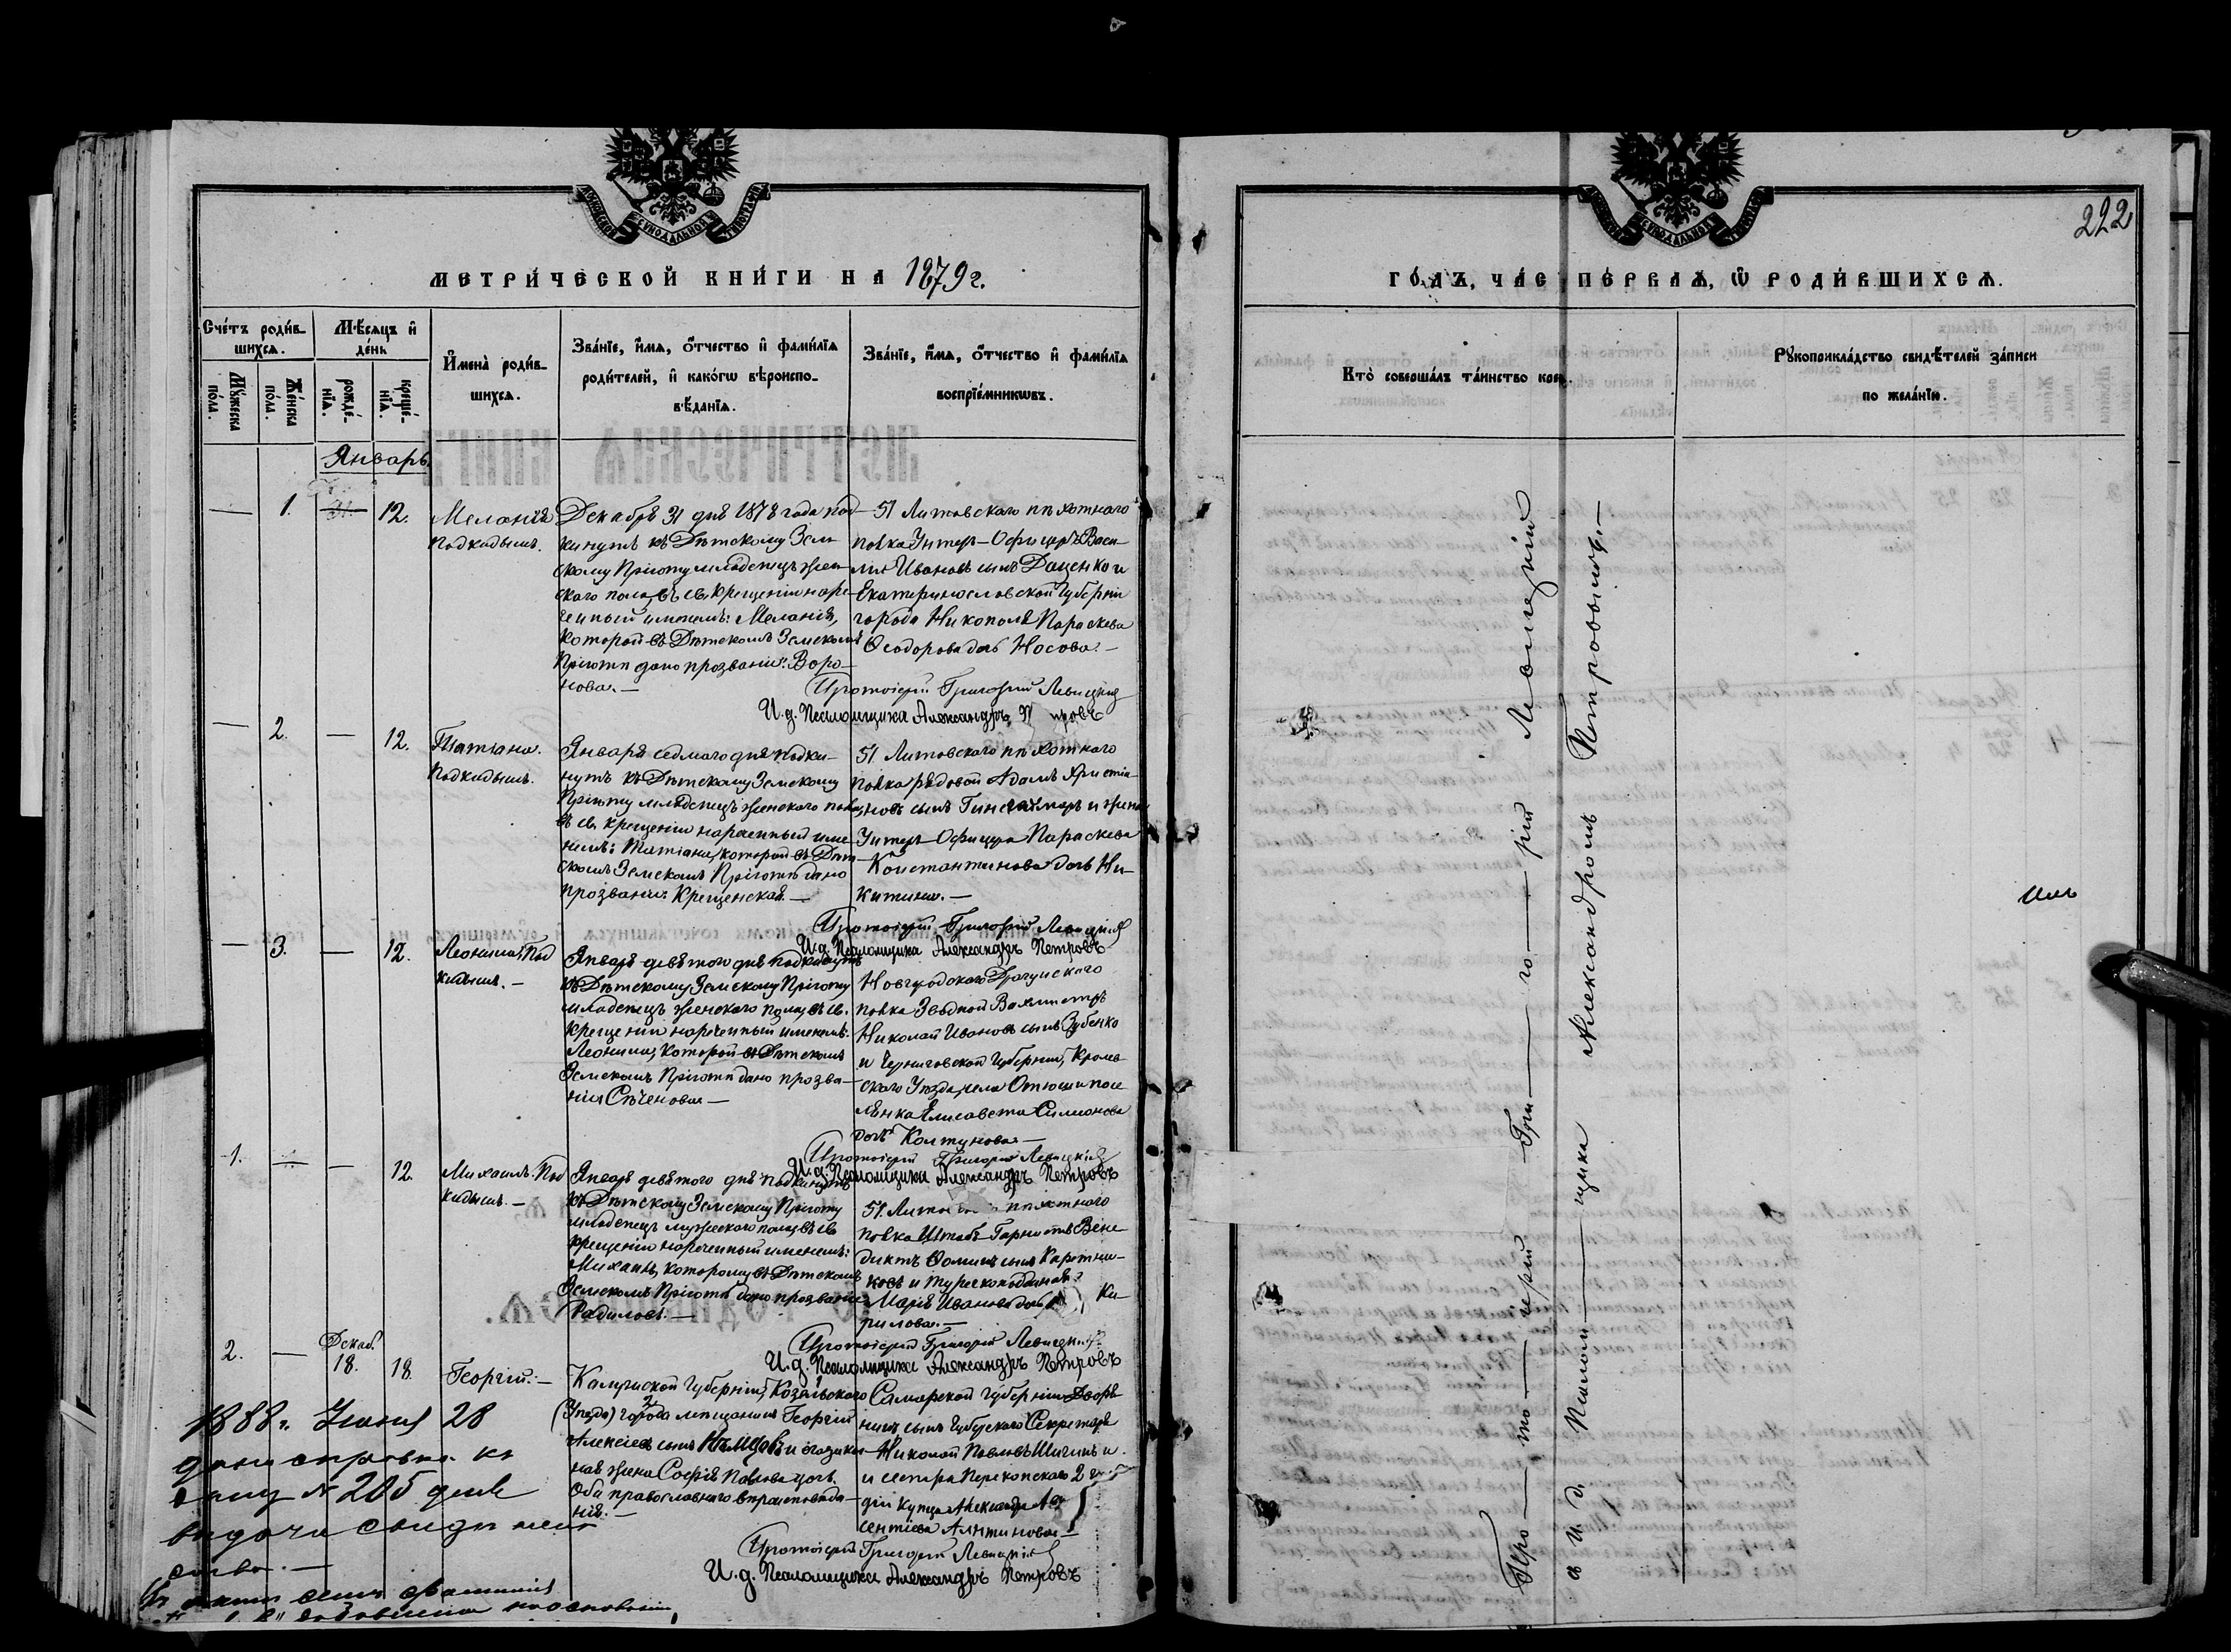 МЕТРИ́ЧЕСКОЙ КНИ́ГИ НА 1879 г.
Сче́тъ роди́в-
шихсѧ.
Мꙋ́жеска
по́ла.
Же́нска
по́ла.
Мѣ́сяцъ и҆
де́нь
рожде́-
нїѧ.
креще́-
нїѧ.
И҆мена̀ роди́в-
шихсѧ.
Зва́нїе, и҆́мѧ, ѻ҆́тчество и҆ фами́лїѧ
роди́телей, и҆ како́гѡ вѣроиспо-
вѣ́данїѧ.
Зва́нїе, и҆́мѧ, ѻ҆́тчество и҆ фами́лїѧ
воспрїе́мникѡвъ.
Январь.
— 1. 31. 12.
Меланія
подкидышъ.
Декабря 31 дня 1878 года под-
кинутъ къ Дѣтскому Зем-
скому Пріюту младенецъ жен-
скаго пола, въ св. крещеніи наре-
ченный именемъ: Меланія,
которой въ Дѣтскомъ Земскомъ
Пріютѣ дано прозваніе: Воро-
нова. —
51 Литовскаго пѣхотнаго
полка Унтеръ-Офицеръ Васи-
лій Ивановъ сынъ Даценко и
Екатеринославской Губерніи
города Никополя Параскева
Ѳеодорова дочь Носова. —
Протоіерей Григорій Левицкій
И. д. Псаломщика Александръ П ровъ
— 2. — 12.
Татіана.
Подкидышъ.
Января седмаго дня подки-
нутъ къ Дѣтскому Земскому
Пріюту младенецъ женскаго пола,
въ св. крещеніи нареченный име-
немъ: Татіана, которой въ Дѣт-
скомъ Земскомъ Пріютѣ дано
прозваніе: Крещенская. —
51 Литовскаго пѣхотнаго
полка рядовой Адамъ Христіа-
новъ сынъ и жена
Унтеръ-Офицера Параскева
Константинова дочь Ни-
китина. —
Протоіерей Григорій Левицкій
И. д. Псаломщика Александръ Петровъ
— 3. — 12.
Леонила, Под
кидышъ. —
Января девятого дня подкинутъ
къ Дѣтскому Земскому Пріюту
младенецъ женскаго пола, въ св.
крещеніи нареченный именемъ:
Леонила, которой въ Дѣтскомъ
Земскомъ Пріютѣ дано прозва-
ніе Сѣченовая —
Новгородскаго Драгунскаго
полка Зводной Вахмистръ
Николай Ивановъ сынъ Зубенко
и Черниговской Губерніи, Кролев-
скаго Уѣзда, села посе-
лянка Елисавета Симионова
дочь Колтунова —
Протоіерей Григорій Левицкій
И. д. Псаломщика Александръ Петровъ
1. — — 12.
Михаилъ. Под
кидышъ. —
Января девятого дня подкинутъ
къ Дѣтскому Земскому Пріюту
младенецъ мужескаго пола, въ св
крещеніи нареченный именемъ:
Михаилъ, которому въ Дѣтскомъ
Земскомъ Пріютѣ дано прозваніе:
Радиловъ. —
51. Лито пѣхотнаго
полка Штабъ-Горнистъ Вене-
диктъ Ѳоминъ сынъ
и
Марія Иванова дочь Ки-
рилова. —
Протоіерей Григорій Левицкій
И. д. Псаломщика Александръ Петровъ
2. — Декаб. 18. 18.
Георгій. —
Калужской Губерніи, Козельского
(Уѣзда) города мещанинъ Георгій
Алексіевъ сынъ Нѣмцовъ и закон-
ная жена Софія Павлова дочь.
Оба православнаго вѣроисповѣда-
нія. —
Самарской Губерніи Дворя-
нинъ сынъ Губернскаго Секретаря
Николай Павловъ Шичинъ и
и сестра Перекопскаго 2 ги
діи купца Александра Ав
сентіева —
Протоіерей Григорій Левицкій
И. д. Псаломщика Александръ Петровъ
1888 г. Іюня 28
дана справка
за № 205 для
выдачи свидѣтель
ства. —
222
ГО́ДЪ, ЧА́С ПЕ́РВАѦ, Ѡ҆ РОДИ́ВШИХСѦ.
Кто̀ соверша́лъ та́инство кре
Рꙋкоприкла́дство свидѣ́телей за́писи
по жела́нїю.
Про — то — іерей Гри — го — рій Левицкій
съ И. д. Псалом — щика Александромъ Петровымъ. —